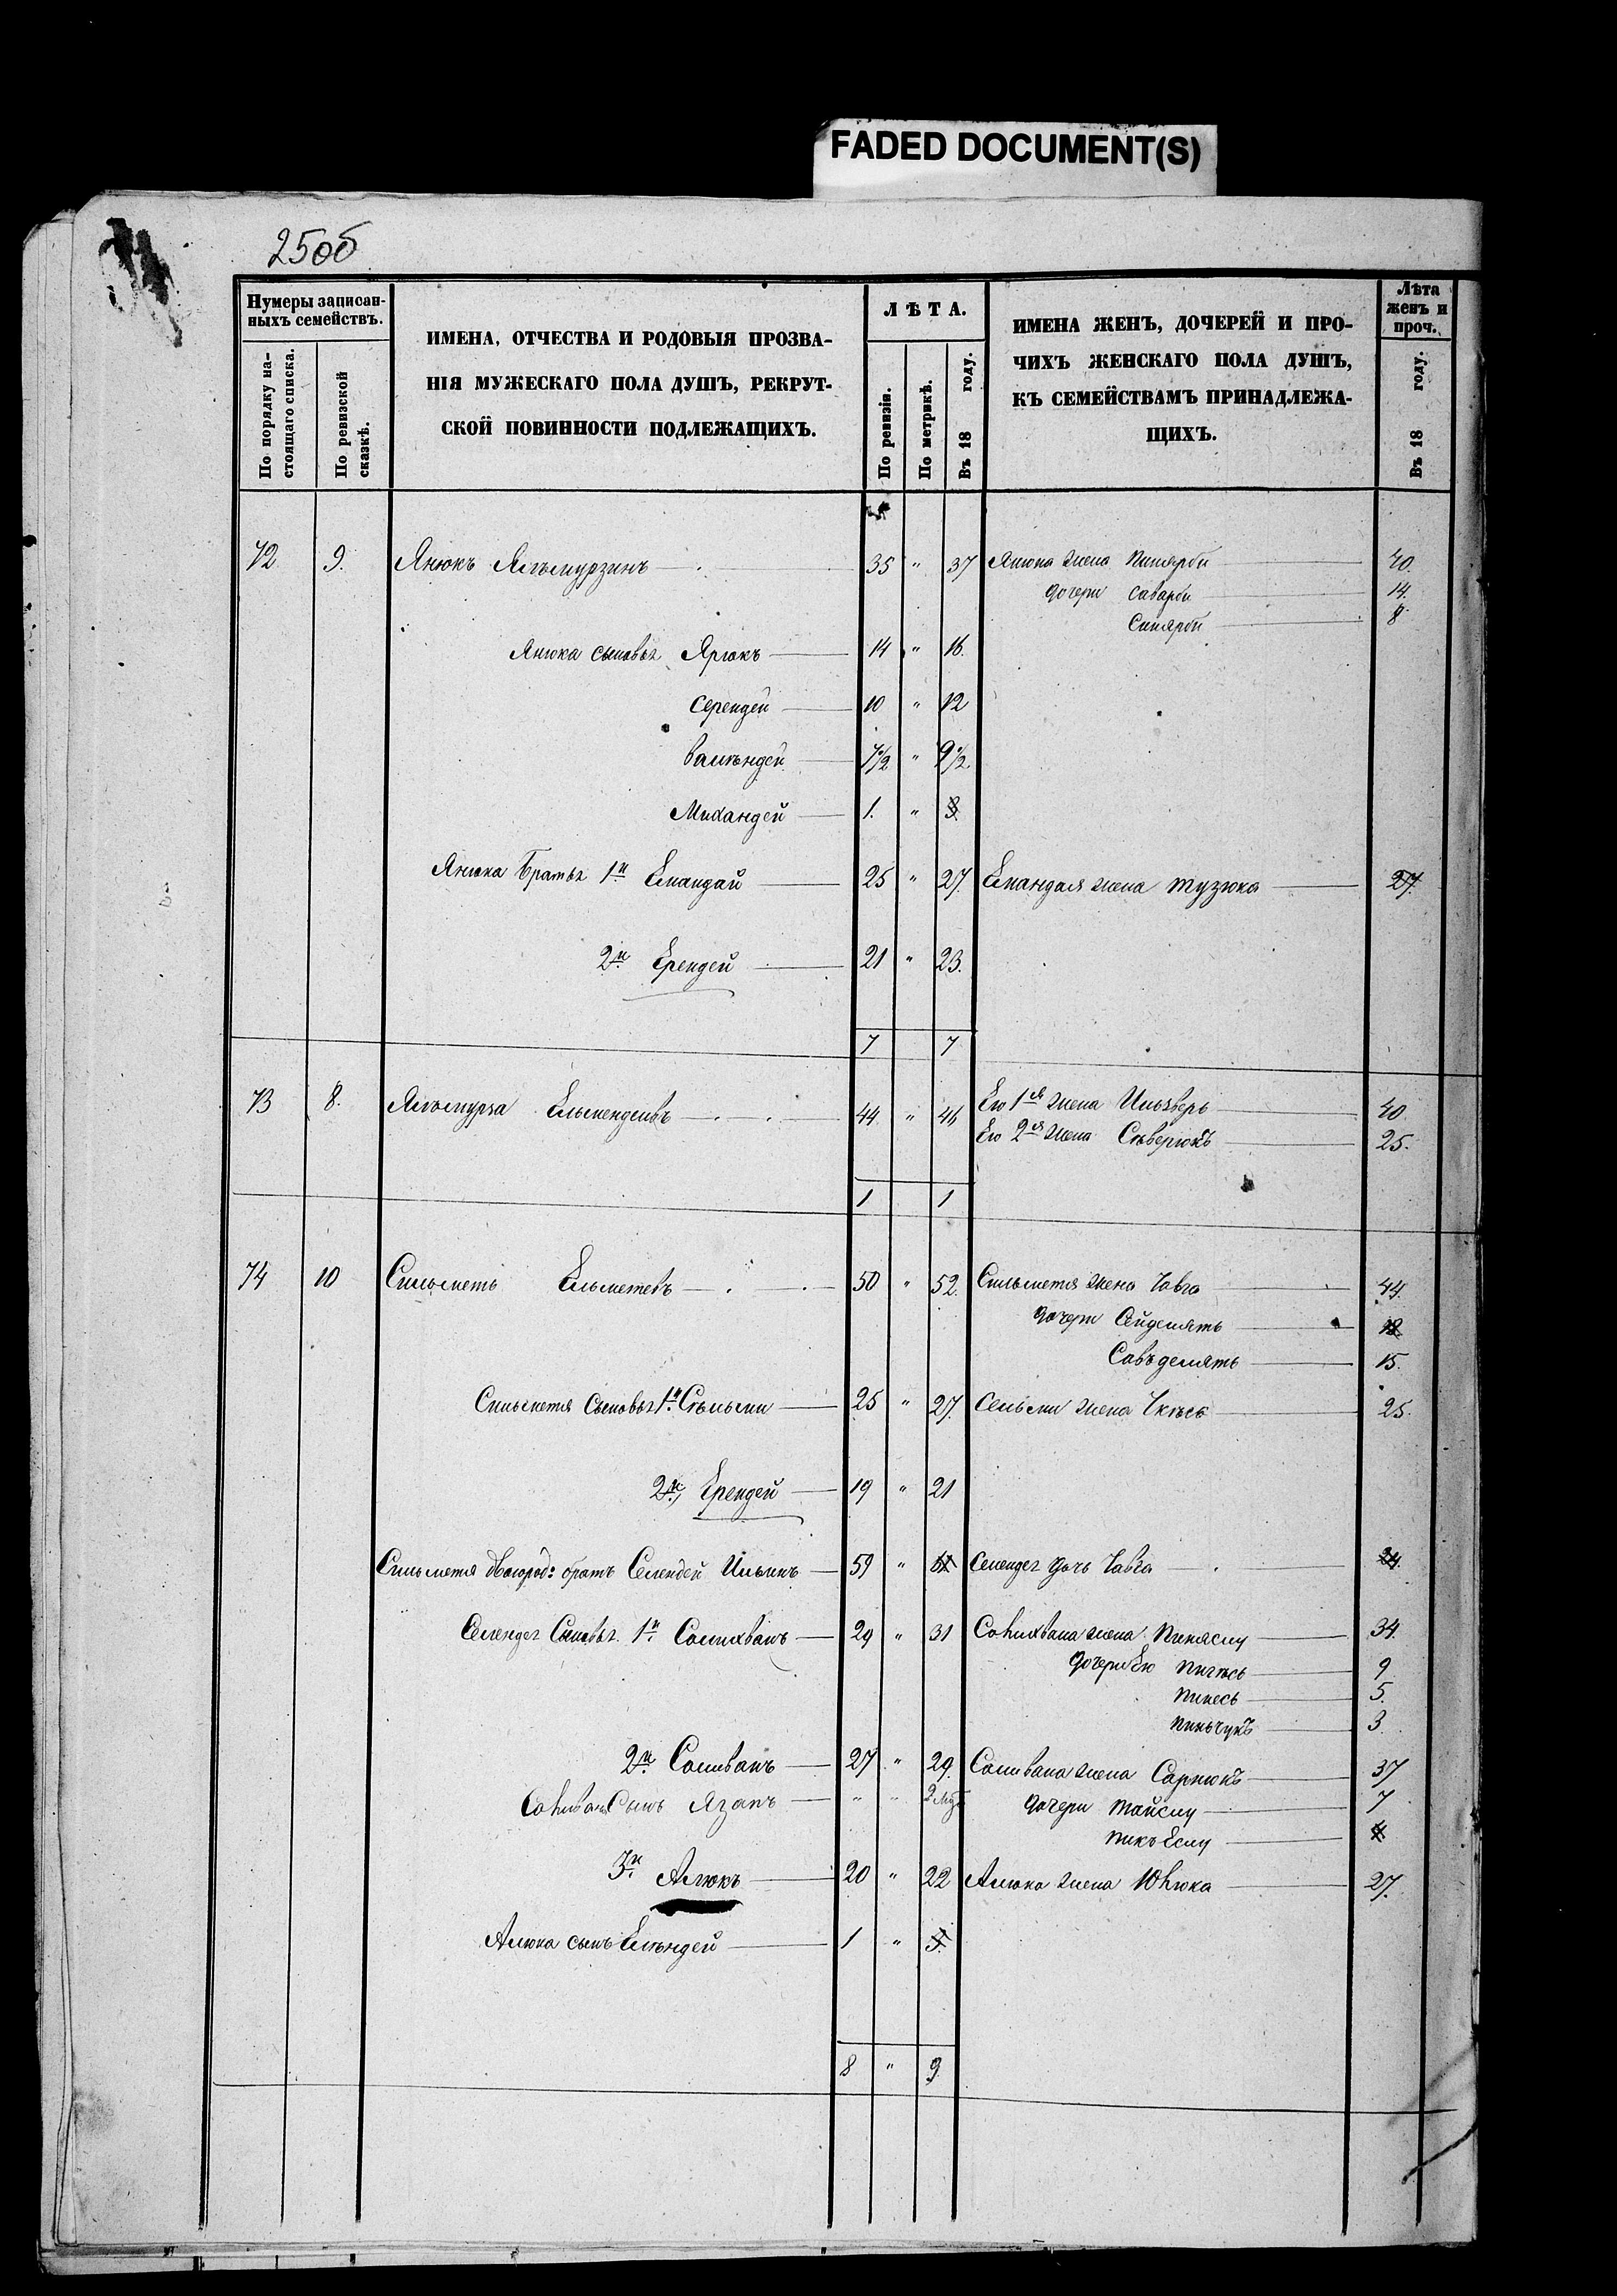 FADED DOCUMENT(S)
25об
Нумеры записан-
ныхъ семействъ.
По порядку на-
стоящаго списка.
По ревизской
сказкѣ.
ИМЕНА, ОТЧЕСТВА И РОДОВЫЯ ПРОЗВА-
НІЯ МУЖЕСКАГО ПОЛА ДУШЪ, РЕКРУТ-
СКОЙ ПОВИННОСТИ ПОДЛЕЖАЩИХЪ.
ЛѢТА.
По ревизіи.
По метрикѣ.
Въ 18 году.
ИМЕНА ЖЕНЪ, ДОЧЕРЕЙ И ПРО-
ЧИХЪ ЖЕНСКАГО ПОЛА ДУШЪ,
КЪ СЕМЕЙСТВАМЪ ПРИНАДЛЕЖА-
ЩИХЪ.
Лѣта
женъ и
проч.
Въ 18 году.
72 9. Янюкъ Яльмурзинъ 35 " 37 Янюка жена Пинярби 40.
дочери Саварби 14.
Синярби 8.
Янюка сыновья Ярюкъ 14 " 16.
Серендей 10 " 12
7½ " 9½
Михандей 1. " 3.
Янюка братья 1й Емандай 25 " 27. Емандая жена Тузюка 27.
2й Ерендей 21 " 23.
7 7
73 8. Яльмурза Ельмендеевъ 44 " 46 Его 1я жена Ильзверь 40
Его 2я жена 25.
1 1
74 10 Сильметь Ельметевъ 50 " 52. Сильметя жена Чавга 44.
дочери Сейделять
Савъделять 15.
Сильметя сыновья 1й 25 " 27. жена 25.
2й Ерендей 19 " 21
Сильметя двоюрод: братъ Селендей Ильинъ 59 " 61 дочь Чавга
сыновья 1й 29 " 31 жена Пиняслу 34.
дочери Ею 9
Пинесь 5.
Пиньчукъ 3
2й Соливанъ 27 " 29. Соливана жена Сарпюкъ 37
сынъ Язанъ " " дочери Тайслу 7
4
3й Алюкъ 20 " 22 Алюка жена 27.
Алюка сынъ 1 " 3.
8 " 9